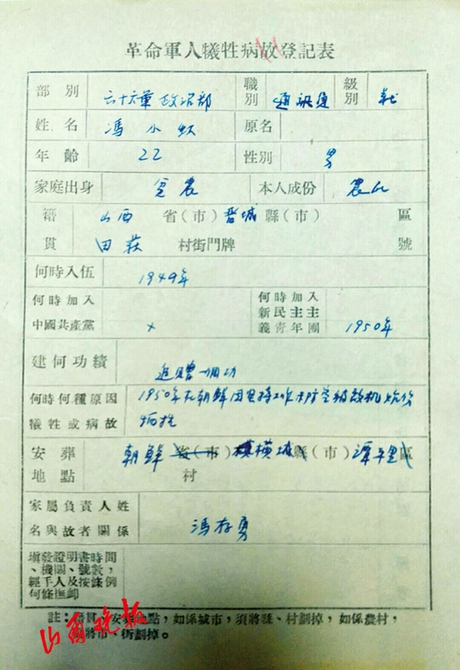 革命軍人犧牲病故登記表
部別 六十六軍政治部 職別 通訊員 級別 戰
姓名 馮小虹 原名
年齡 22 性別 男
家庭出身 貧農 本人成份 農民
籍 山西 省（市）晋城 縣（市） 區
貫 田萩 村街門牌 號
何時入伍 1949年
何時加入中國共產黨 × 何時加入新民主主義青年團 1950年
建何功績
何時何種原因 1950年在朝鮮因堅持工作
犧牲或病故 犧牲
安葬 朝鮮 省（市） 橫城縣（市） 區
地點 村
家屬負責人姓
名與故者關係 馮存勇
填發證明書時間
、機關、號數，
經手人及按條例
何條撫卹
註：籍貫、安葬地點，如係城市，須將縣、村劃掉，如係農村，
將市、街劃掉。
山西晚报